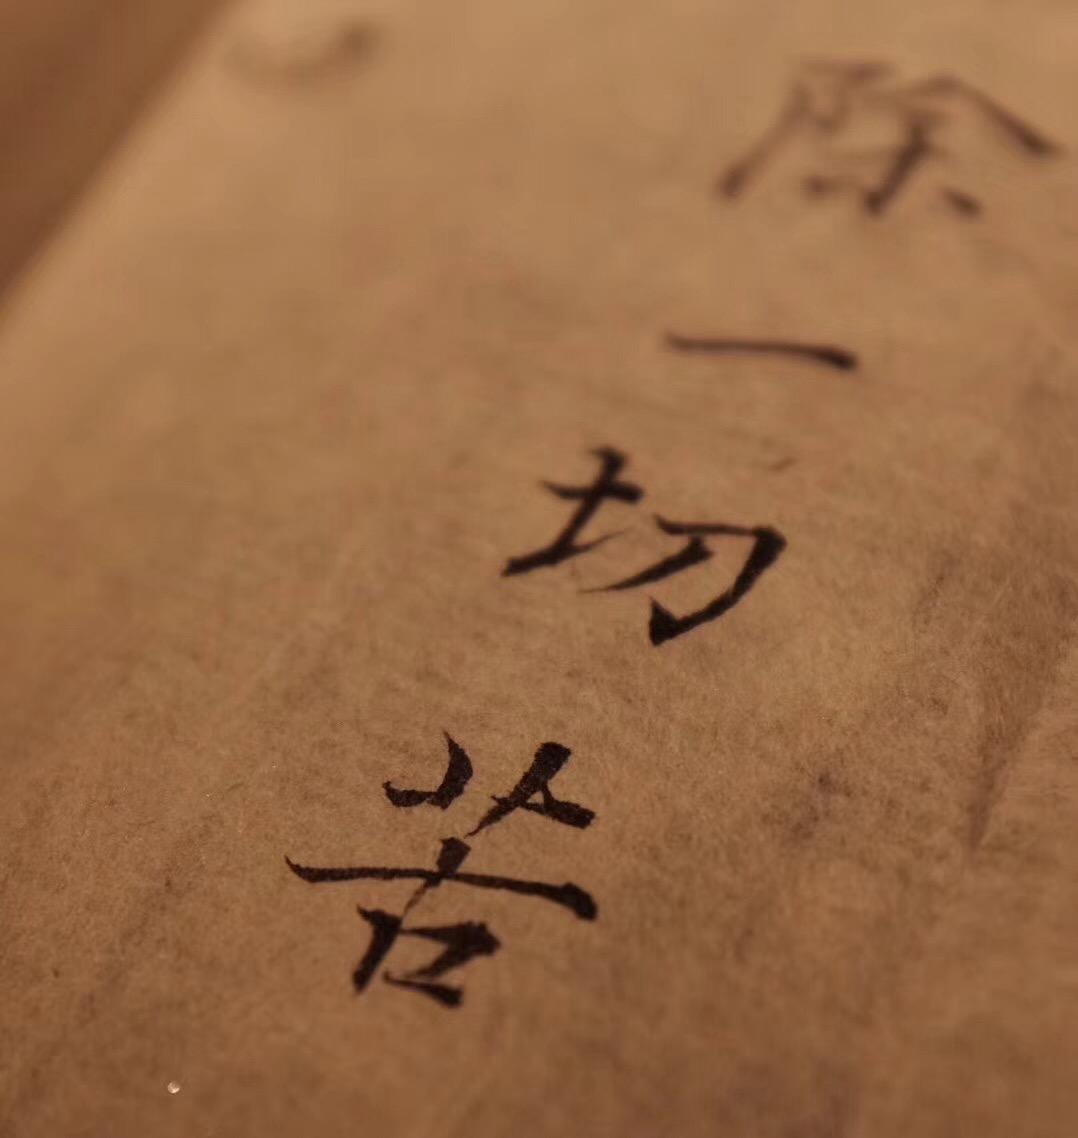 除一切苦